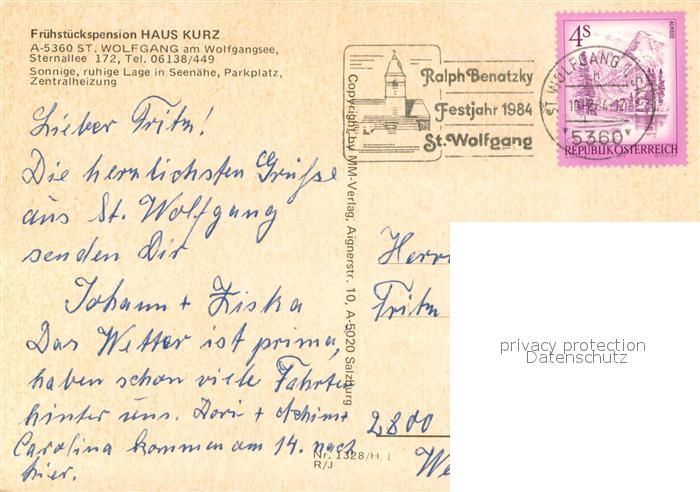 Frühstückspension HAUS KURZ
A-5360 ST. WOLFGANG am Wolfgangsee,
Sternallee 172, Tel. 06138/449
Sonnige, ruhige Lage in Seenähe, Parkplatz,
Zentralheizung
Lieber Fritz!
Die herzlichsten Grüße
aus St. Wolfgang
senden Dir
Johann + Ziska
Das Wetter ist prima,
haben schon viele Fahrten
hinter uns. Dori + Achim +
Carolina kommen am 14. nach
hier.
Copyright by MM-Verlag, Aignerstr. 10, A-5020 Salzburg
Nr. 1328/H
R/J
Ralph Benatzky
Festjahr 1984
St. Wolfgang
ST. WOLFGANG
5360
4S
ALMSEE
REPUBLIK ÖSTERREICH
Herrn
Fritz
2800
We
privacy protection
Datenschutz